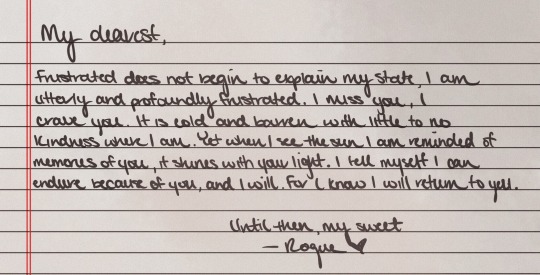 My dearest,
Frustrated does not begin to explain my state, I am
utterly and profoundly frustrated. I miss you, I
crave you. It is cold and barren with little to no
kindness where I am. Yet when I see the sun I am reminded of
memories of you, it shines with your light. I tell myself I can
endure because of you, and I will. For I know I will return to you.
Until then, my sweet
— Rogue ♥